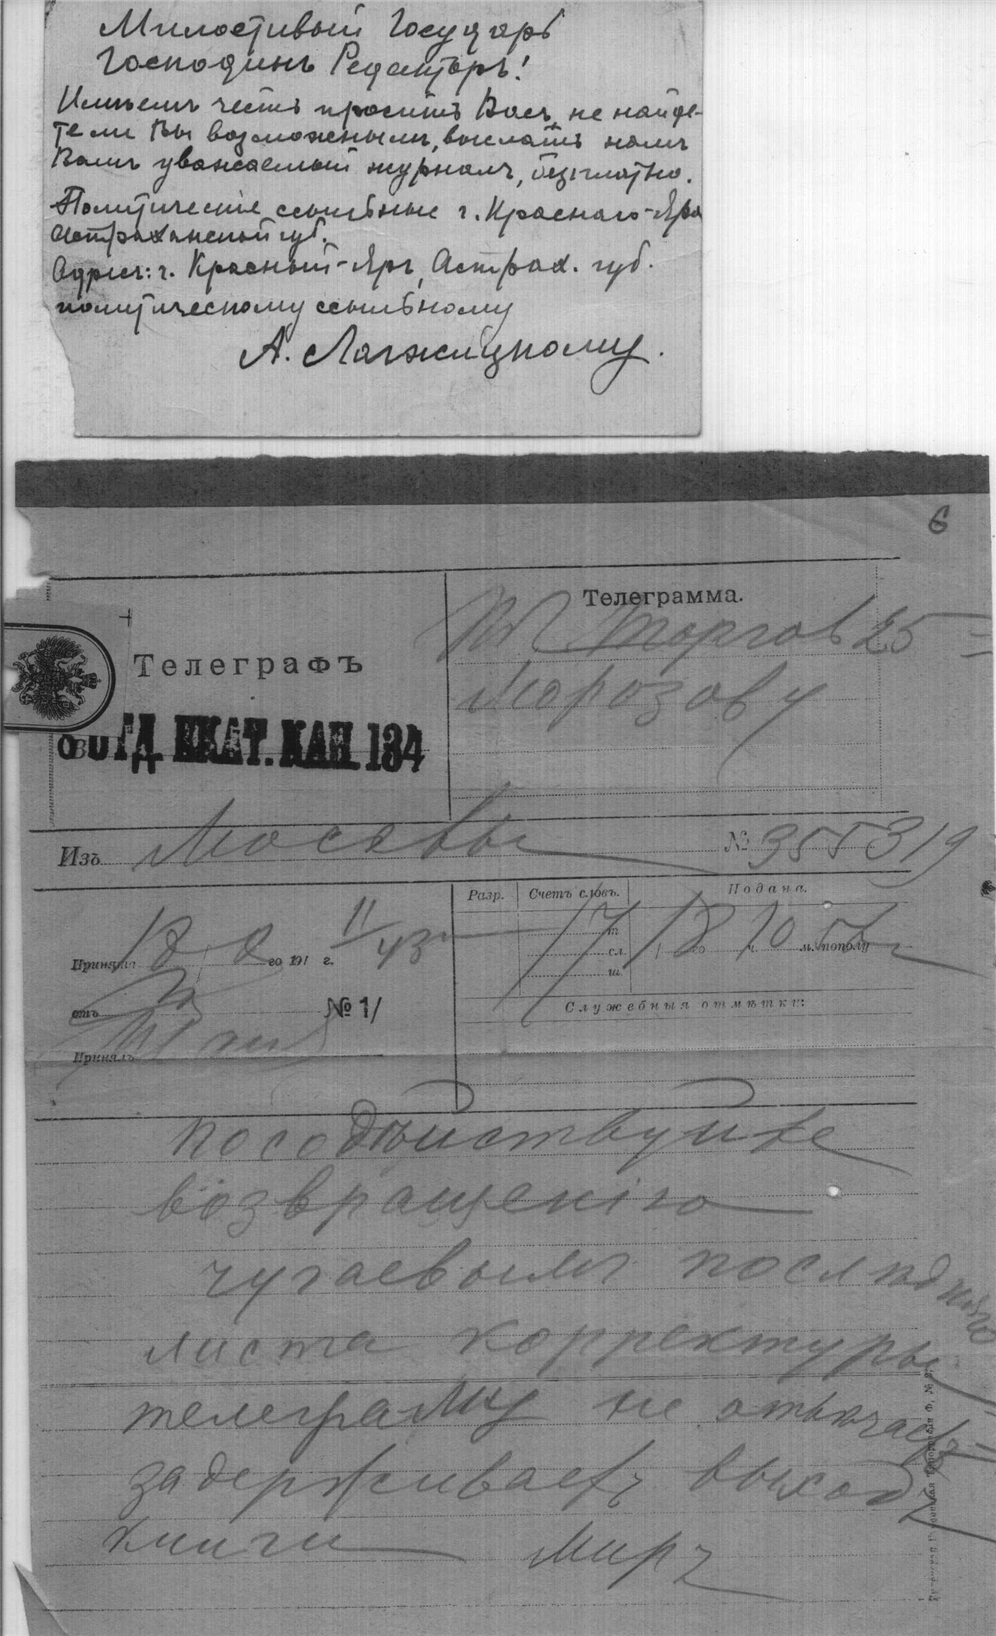 Милостивый Государь
Господинъ Редакторъ!
Имѣемъ честь просить Васъ, не найде-
те ли Вы возможнымъ, выслать намъ
Вашъ уважаемый журналъ, безплатно.
Политическіе ссыльные г. Краснаго-Яра
Астраханской губ.
Адресъ: г. Красный-Яръ, Астрах. губ.
политическому ссыльному
А. Лагжицкому.
6
Телеграмма.
Торгов 25
Морозову
Телеграфъ
ОТД. ЕКАТ. КАН. 134
Изъ Москвы № 355319
Разр. Счетъ словъ. Подана.
17 18 10 м. пополу
т.
сл.
ш.
Принята 18 го 191 г. 11/43
отъ № 1/
Служебныя отмѣтки:
Принялъ
посодѣйствуйте
возвращенію
чугаевымъ послѣдняго
листа корректуры
телеграмму не отвѣчаетъ
задерживаетъ выходъ
книги Миръ